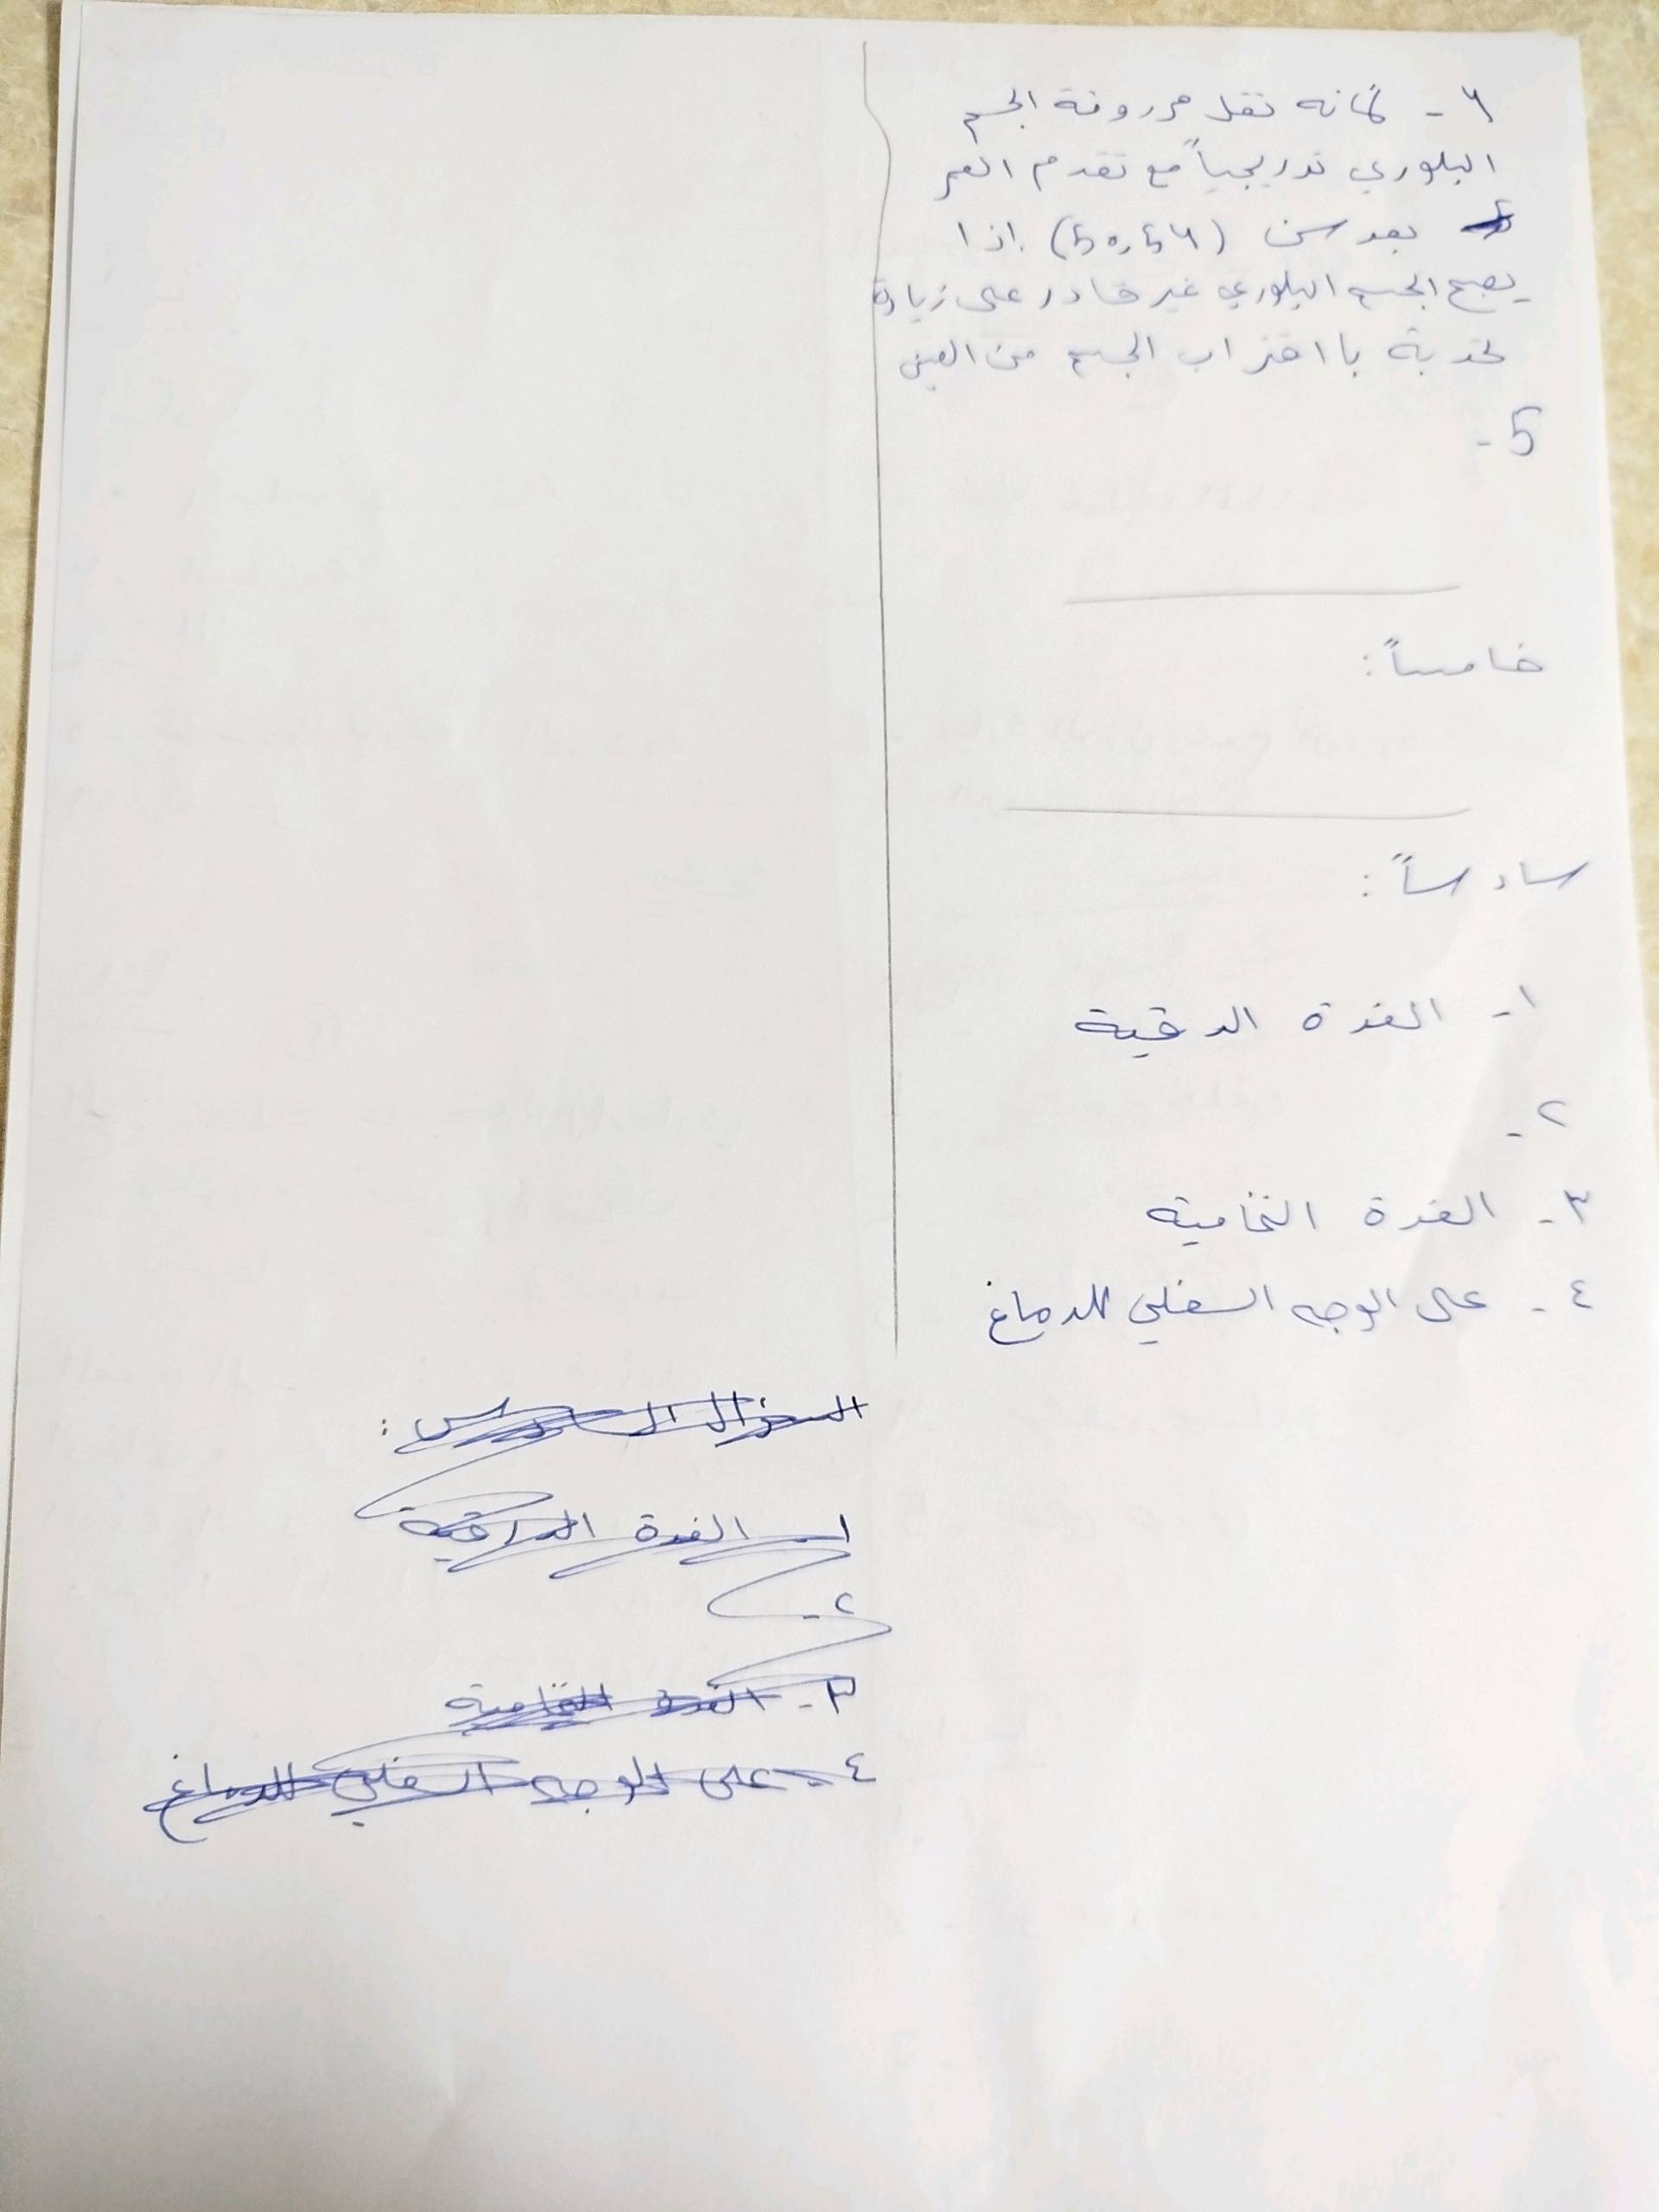 ٦ - لأنه تقل مرونة الجسم
البلوري تدريجياً مع تقدم العمر
بعد سن إذا
يصبح الجسم البلوري غير قادر على زيادة
تحدبة بااقتراب الجسم من العين
5 -
خامساً :
سادساً :
١ - الغدة الدرقية
٢ -
٣ - الغدة النخامية
٤ - على الوجه السفلي للدماغ
السؤال السادس :
١ - الغدة الدرقية
٢ -
٣ - الغدة النخامية
٤ - على الوجه السفلي للدماغ